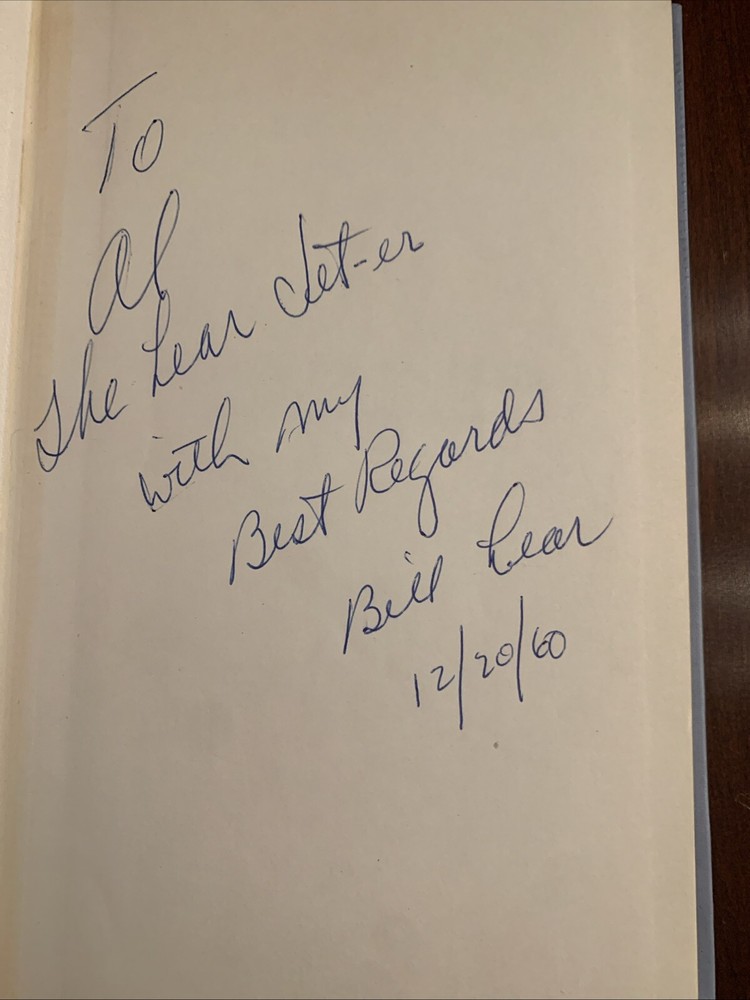 To
Al
The Lear Jet-er
with my
Best Regards
Bill Lear
12/20/60